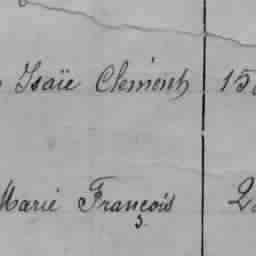 Isaïe Clément 15
Marie François 2